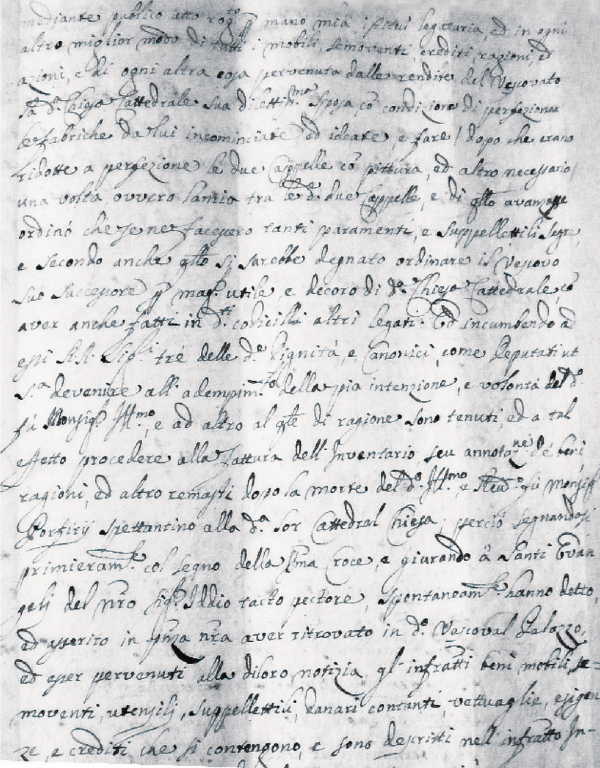 mediante publico atto rog.to p mano mia istituì legataria, ed in ogni
altro miglior modo di tutti i mobili, semoventi, crediti, ragioni, ed
azioni, e di ogni altra cosa pervenuta dalle rendite del Vescovato
d.a Chiesa Cattedrale sua dilettis.ma Sposa cõ condizione di perfezionar
le fabriche da lui incominciate, ed ideate, e fare / dopo che erano
ridotte a perfezione le due Cappelle cõ pittura, ed altro necessario /
una volta ovvero lamia tra le d.e due Cappelle, e di qllo avanzasse
ordinò che se ne facessero tanti paramenti, e suppellettili sagre
e secondo anche qllo si sarebbe degnato ordinare il Vescovo
suo successore p mag.r utile, e decoro di d.a Chiesa Cattedrale, cõ
aver anche fatti in d.ti codicilli altri legati. Ed incumbendo ad
essi Ill. Sig.ri trè delle d.e Dignità, e Canonici, come Deputati ut
s.a devenire all'adempim.to della pia intenzione, e volontà del d.o
fù Monsig.r Ill.mo, e ad altro al qle di ragione sono tenuti, ed a tal
effetto procedere alla fattura dell'Inventario seu annotaz.ne de beni
ragioni, ed altro remasti dopo la morte del d.o Ill.mo e Rev.o fù Monsig.r
Porfirij spettantino alla d.a lor Cattedral Chiesa, perciò segnandosi
primieram.te col segno della S͞ma Croce, e giurando à Santi Evan
gelj del nr̃o Sig.r Iddio tacto pectore, spontaneam.te hanno detto,
ed asserito in pñza nr̃a aver ritrovato in d.o Vescoval Palazzo,
ed esser pervenuti alla diloro notizia gl'infratti beni mobili, se=
moventi, utensilj, suppellettili, danari contanti, vettuaglie, esigen
ze, e crediti che si contengono, e sono descritti nell'infratto In-